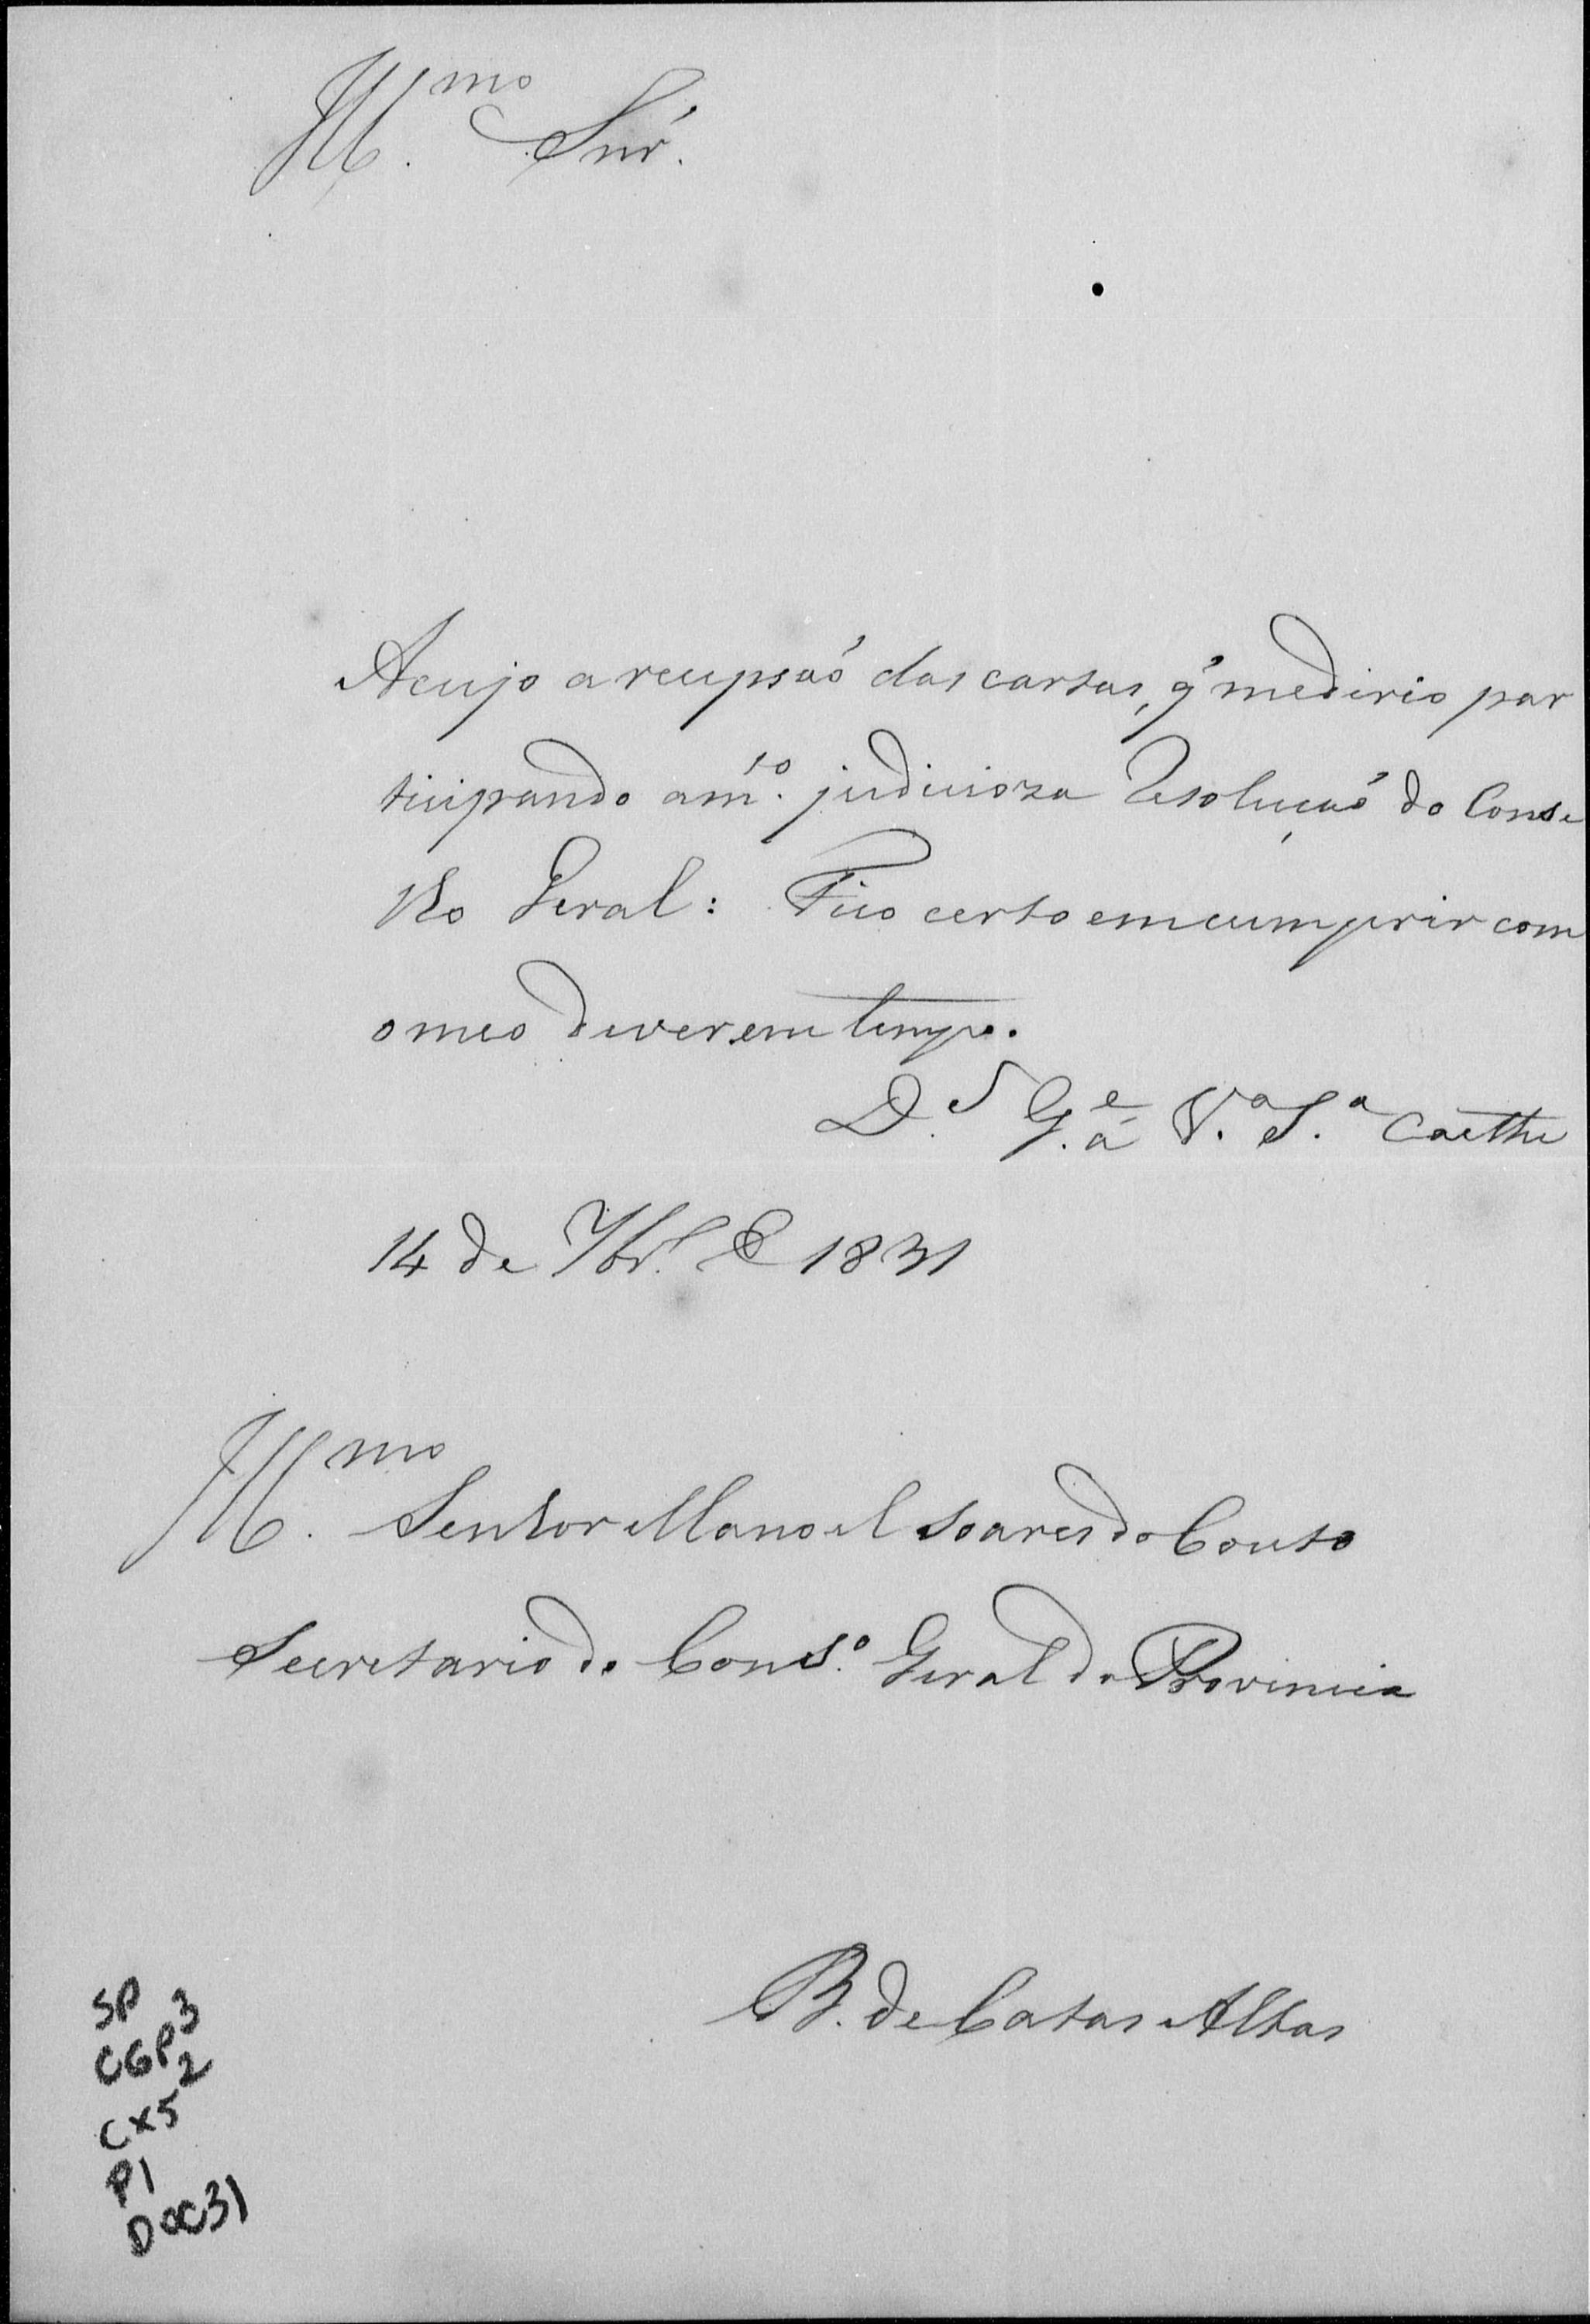 Ill.mo Snr.
Acujo a recepsaó das cartas, q' medirio par
ticipando am.to judicioza Resoluçaó do Conse
lho Geral: Fico certo em cumprir com
o meo dever em tempo.
D.s G.e a V.a S.a Caethe
14 de 7br.o de 1831
Ill.mo Senhor Manoel Soares do Couto
Secretario do Cons.o Geral da Provincia
B. de Catas Altas
SP
CGP3
2
CX5
P1
DOC31